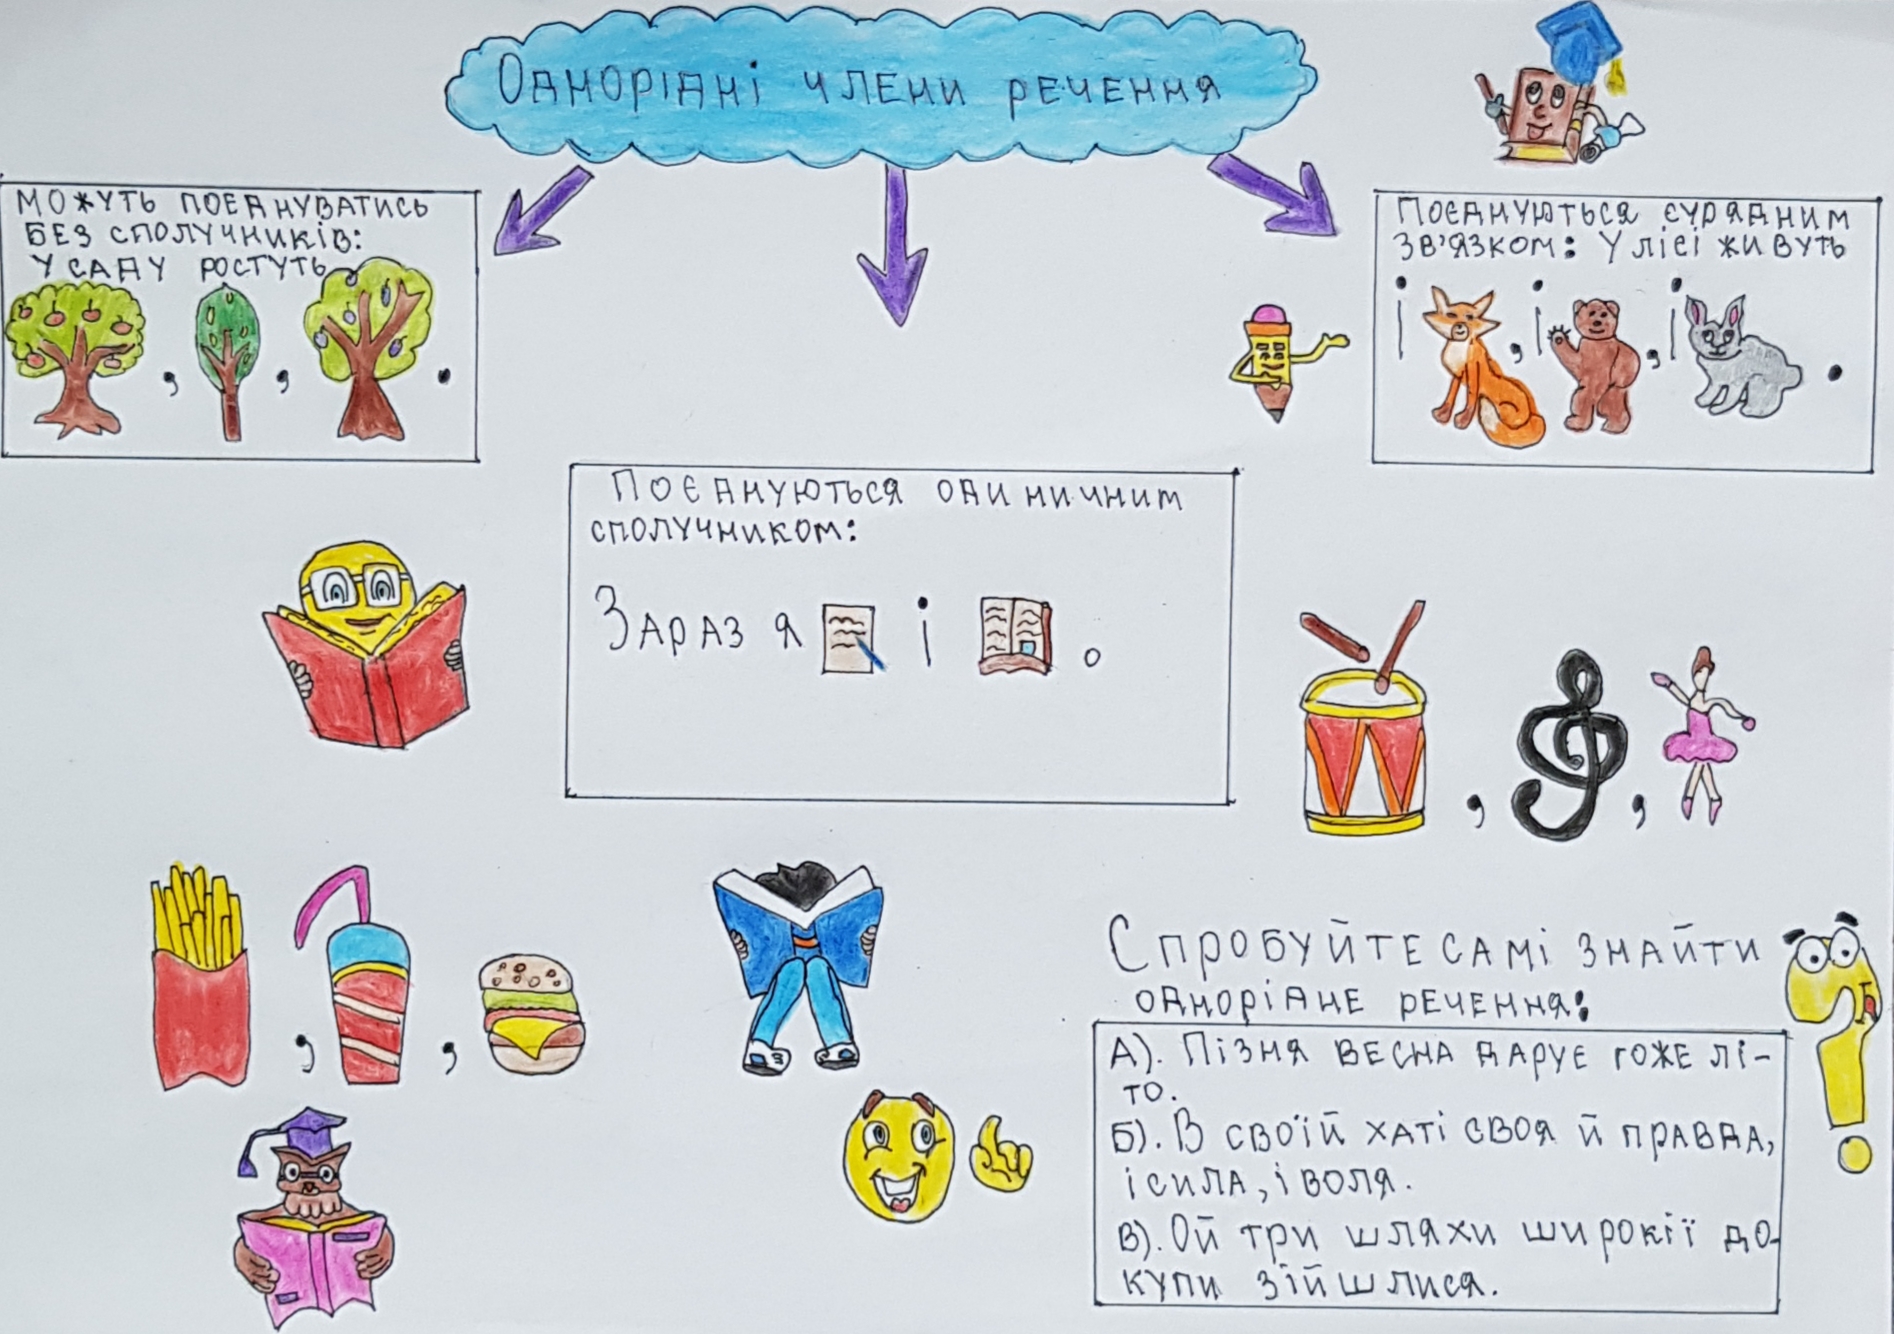 Однорідні члени речення
Можуть поєднуватись
без сполучників:
У саду ростуть
, , .
Поєднуються сурядним
зв'язком: У лісі живуть
і , і , і .
Поєднуються одиничним
сполучником:
Зараз я і .
, ,
, ,
Спробуйте самі знайти
одноріднe речення:
А). Пізня весна дарує гоже лі-
то.
Б). В своїй хаті своя й правда,
і сила, і воля.
В). Ой три шляхи широкії до-
купи зійшлися.